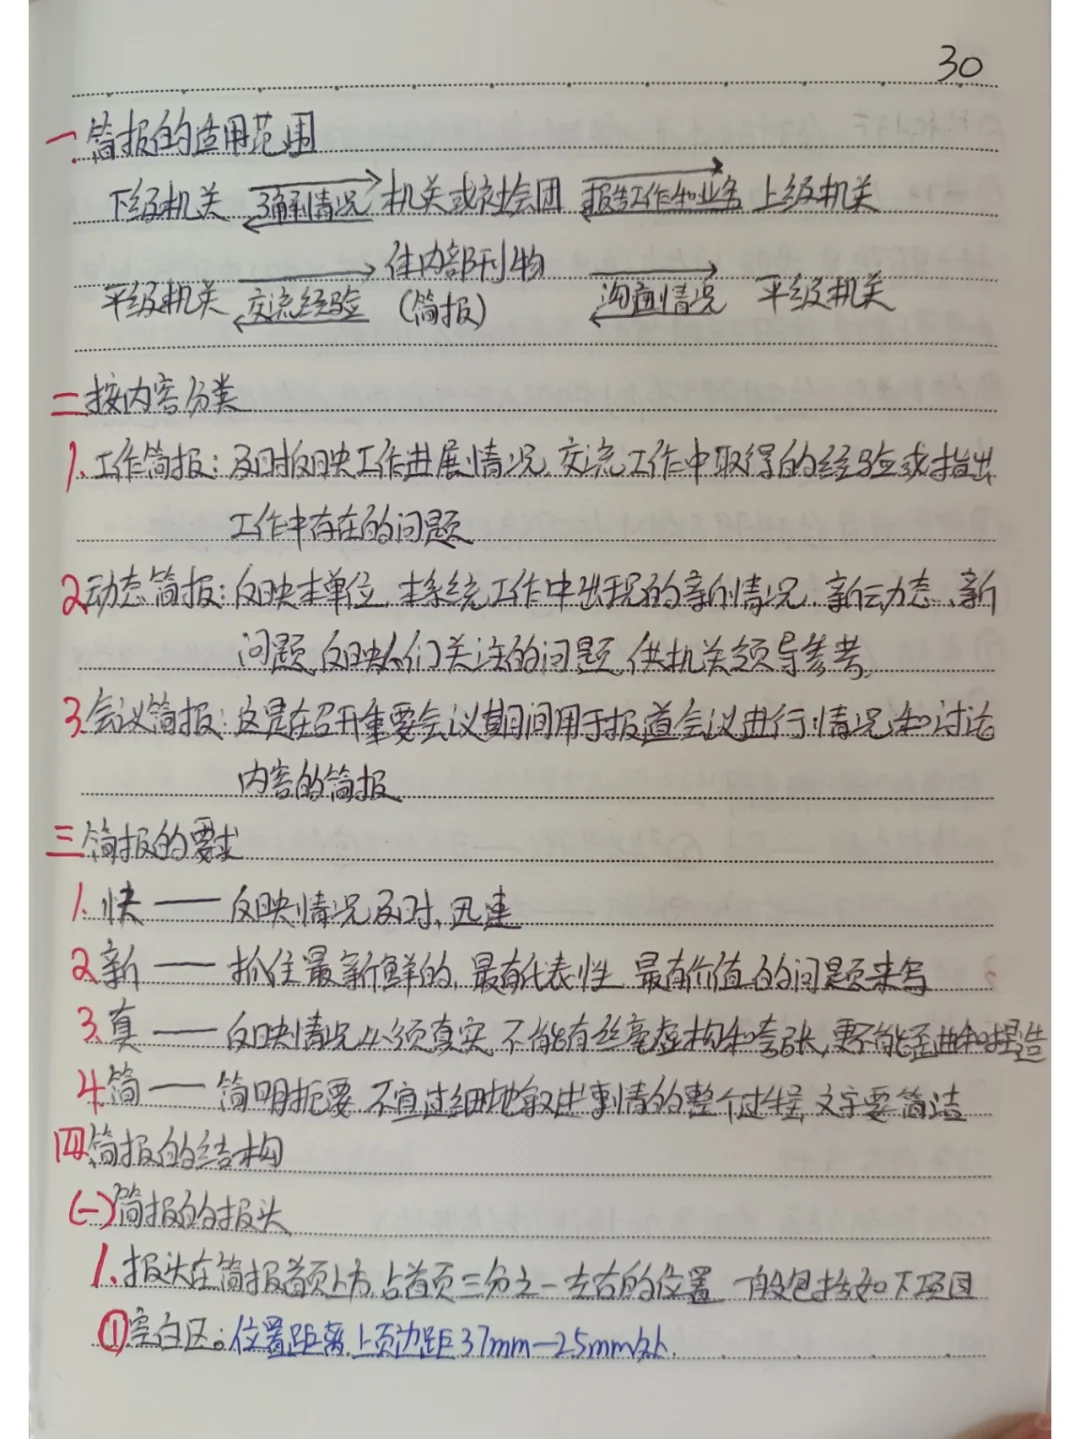 30
一.简报的适用范围
下级机关 了解情况 机关或社会团 报告工作和业务 上级机关
平级机关 交流经验 体内部刊物 沟通情况 平级机关
(简报)
二 按内容分类
1.工作简报：及时反映工作进展情况,交流工作中取得的经验或指出
工作中存在的问题
2.动态简报：反映本单位.本系统工作中出现的新情况.新动态、新
问题,反映人们关注的问题,供机关领导参考.
3.会议简报：这是在召开重要会议期间用于报道会议进行情况和讨论
内容的简报
三 简报的要求
1.快 —— 反映情况及时,迅速
2.新 —— 抓住最新鲜的,最有代表性,最有价值的问题来写
3.真 —— 反映情况必须真实,不能有丝毫虚构和夸张,更不能歪曲和捏造
4.简 —— 简明扼要,不宜过细地叙述事情的整个过程,文字要简洁
四.简报的结构
(一)简报的报头
1.报头在简报首页上方,占首页三分之一左右的位置,一般包括如下项目
①空白区。位置距离上页边距37mm—25mm处.